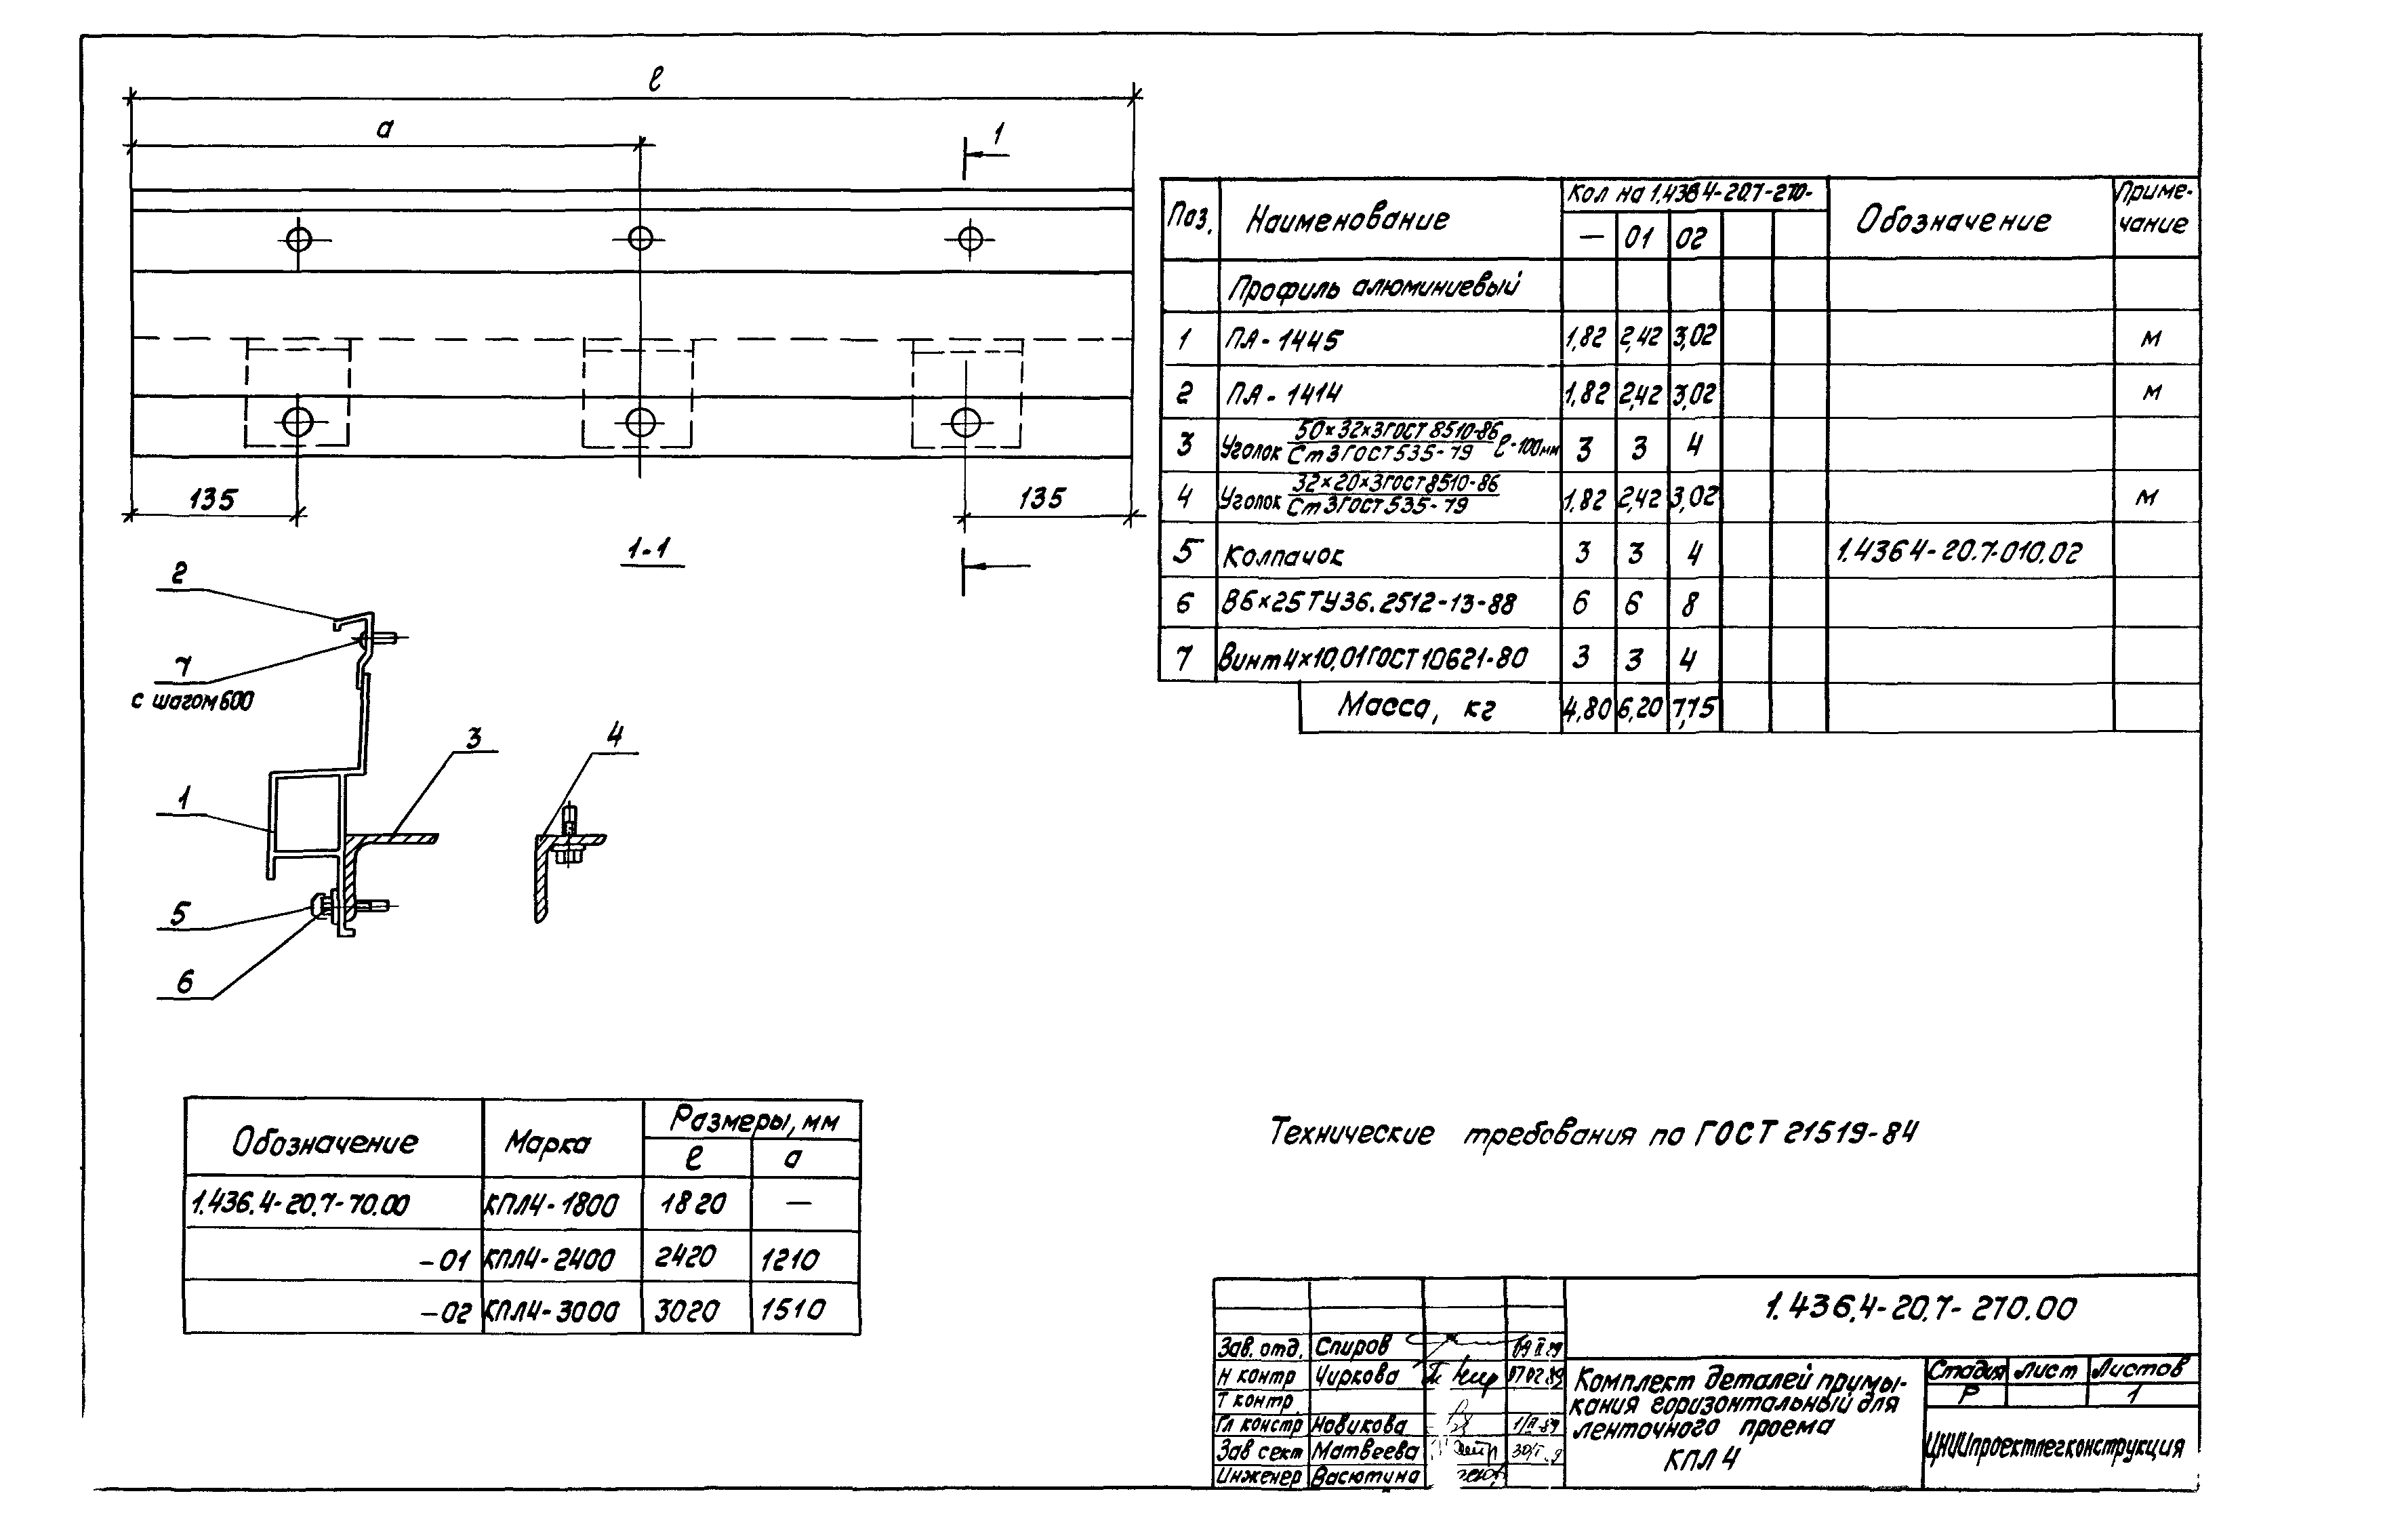 ℓ
а
1
135
135
1-1
2
7
с шагом 600
1
3
4
5
6
Поз. Наименование Кол на 1.436 4-20.7-270- Обозначение Приме-
чание
— 01 02
Профиль алюминиевый
1 ПА-1445 1,82 2,42 3,02 м
2 ПА-1414 1,82 2,42 3,02 м
3 Уголок 50×32×3 ГОСТ 8510-86 ℓ-100мм 3 3 4
Ст 3 ГОСТ 535-79
4 Уголок 32×20×3 ГОСТ 8510-86 1,82 2,42 3,02 м
Ст 3 ГОСТ 535-79
5 Колпачок 3 3 4 1.436 4-20.7-010.02
6 В6×25 ТУ 36.2512-13-88 6 6 8
7 Винт 4×10.01 ГОСТ 10621-80 3 3 4
Масса, кг 4,80 6,20 7,75
Обозначение Марка Размеры, мм
ℓ а
1.436.4-20.7-70.00 КПЛ4-1800 1820 —
-01 КПЛ4-2400 2420 1210
-02 КПЛ4-3000 3020 1510
Технические требования по ГОСТ 21519-84
1.436.4-20.7-270.00
Зав. отд. Спиров
Н контр Чиркова 07 02 89
Т контр
Гл констр Новикова
Зав сект Матвеева
Инженер Васютина
Комплект деталей примы-
кания горизонтальный для
ленточного проема
КПЛ 4
Стадия Лист Листов
Р 1
ЦНИИпроектлегконструкция